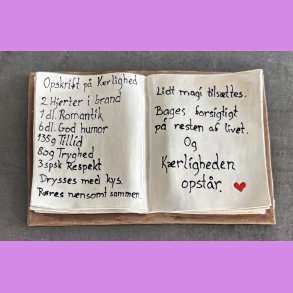 Opskrift på Kærlighed
2 Hjerter i brand
1 dl. Romantik
6dl. God humor
135g Tillid
80g Tryghed
3 spsk Respekt
Drysses med kys.
Røres nænsomt sammen.
Lidt magi tilsættes.
Bages forsigtigt
på resten af livet.
Og
Kærligheden
opstår.